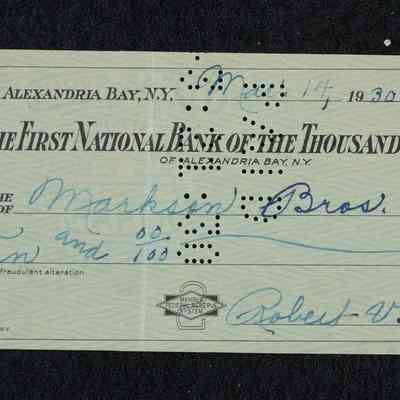 ALEXANDRIA BAY, N.Y. Mar 14, 1930
HE FIRST NATIONAL BANK OF THE THOUSAND
OF ALEXANDRIA BAY, N.Y.
HE
OF Markson Bros.
and 00/100
fraudulent alteration
MEMBER
FEDERAL RESERVE
SYSTEM
Robert V.